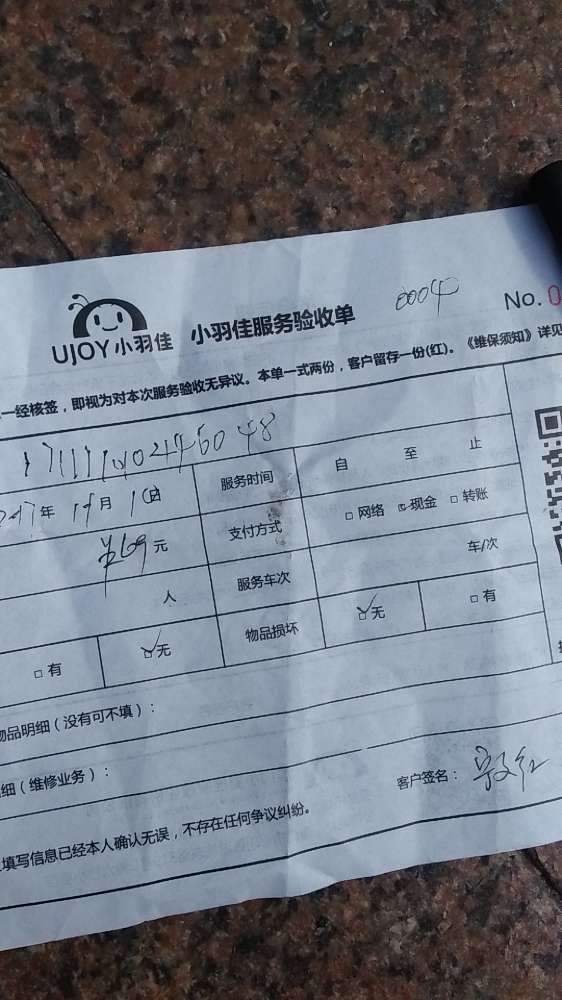 UJOY 小羽佳 小羽佳服务验收单 00040 No. 0
一经核签，即视为对本次服务验收无异议。本单一式两份，客户留存一份(红)。《维保须知》详见
服务时间 自 至 止
年 月 1 日 支付方式 网络 现金 转账
¥169 元 服务车次 车/次
人
有 无 物品损坏 无 有
物品明细（没有可不填）：
细（维修业务）：
客户签名：
填写信息已经本人确认无误，不存在任何争议纠纷。